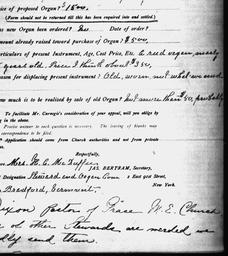 price of proposed Organ? $1500.
(Form should not be returned till this has been required into and settled.)
new Organ been ordered? No Date of order?
amount already raised toward purchase of Organ? $500.
particulars of present Instrument, Age, Cost Price, Etc. A reed organ, nearly
years old. Price I think about $350.
reason for displacing present instrument? Old, worn out what we need
how much is to be realized by sale of old Organ? Not more than $50, probably
To facilitate Mr. Carnegie's consideration of your appeal, will you oblige by
Precise answer to each question is necessary. The leaving of blanks may
correspondence to be filed.
Application should come from Church authorities and not from private
Respectfully,
JAS. BERTRAM, Secretary,
Mrs. W. C.
Designation Steward and Organ Com 2 East 91st Street,
New York.
Bradford, Vermont.
Dixon Pastor of Grace M. E. Church
of other Stewards are needed we
send them.